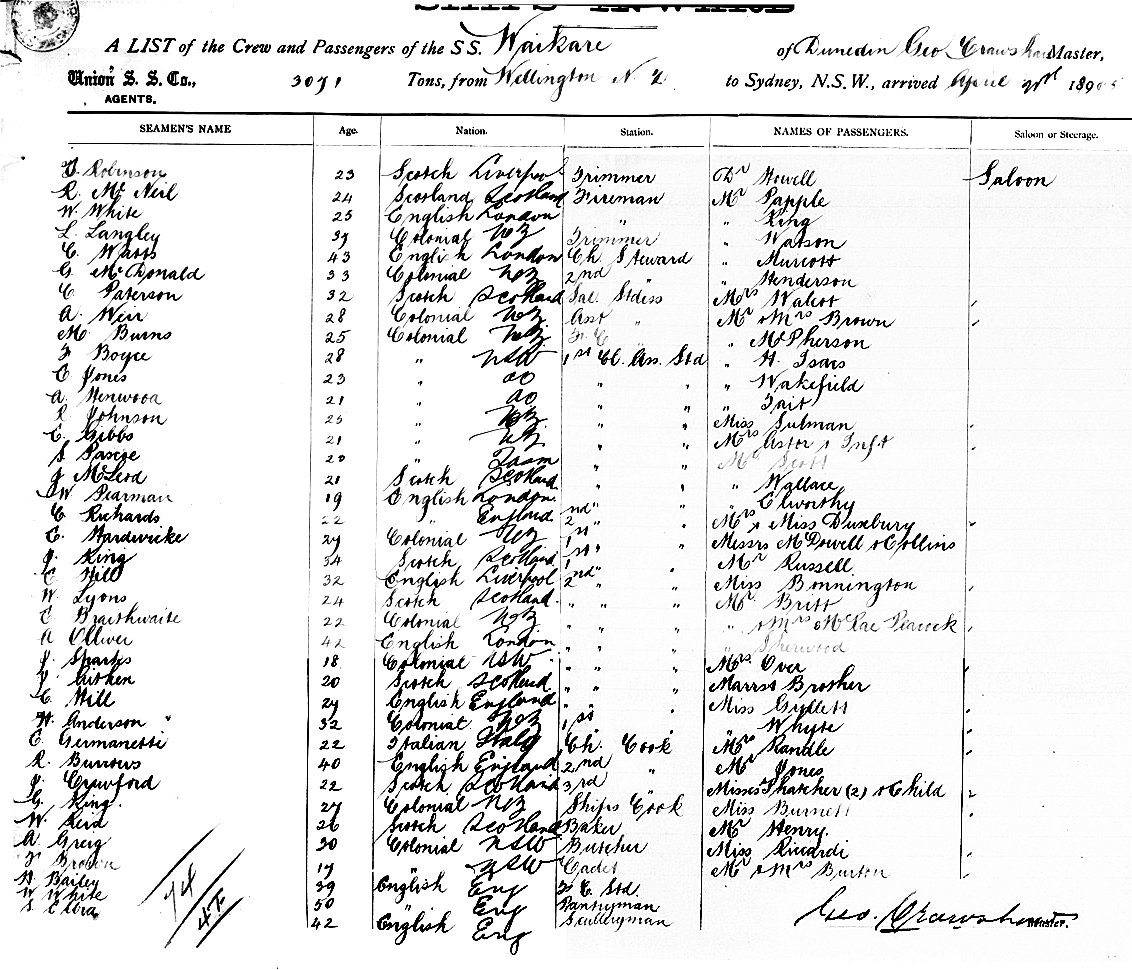 SHIPS INWARD
A LIST of the Crew and Passengers of the S.S. Waikare of Dunedin Geo Crawshaw Master,
Union S. S. Co., AGENTS. 3071 Tons, from Wellington N Z to Sydney, N.S.W., arrived April 189
SEAMEN'S NAME Age. Nation. Station. NAMES OF PASSENGERS. Saloon or Steerage.
Robinson 23 Scotch Liverpool Trimmer Dr Howell Saloon
R. McNeil 24 Scotland Scotland Fireman Mr Papple
W. White 25 English London " " King
L. Langley 37 Colonial NZ Trimmer " Watson
C. Watts 43 English London Ch Steward " Murcott
G. McDonald 33 Colonial NZ 2nd " " Henderson
C. Paterson 32 Scotch Scotland Sal. Stdess Mrs Walcot
A. Weir 28 Colonial NZ Asst " Mr & Mrs Brown
M. Burns 25 Colonial NZ F. C " McPherson
F Boyce 28 " NSW 1st Cl. Ass. Std " H. Isacs
E Jones 23 " do " " Wakefield
A. Henwood 21 " do " " " Tait
R Johnson 25 " NZ " " Miss Sulman
E. Gibbs 21 " NZ " " Mrs Astor & Inft
S Pascoe 20 " Tasm " " Mr Scott
J McLeod 21 Scotch Scotland " " " Wallace
W Pearman 19 English London " " " Elworthy
C Richards 22 " England 2nd " " Mrs & Miss Duxbury
E. Hardwicke 27 Colonial NZ 1st " " Messrs McDowell & Collins
J. King 34 Scotch Scotland 1st " Mr Russell
E Hill 32 English Liverpool 2nd " Miss Bonnington
W. Lyons 24 Scotch Scotland " " " Mr Britt
E Braithwaite 22 Colonial NZ " " " " & Mrs McRae Peacock
A Olliver 42 English London " " " " Sherwood
J. Sparks 18 Colonial NSW " " " Mrs Over
J Aitken 20 Scotch Scotland " " " Brother
C. Hill 27 English England " " " Miss Gyllett
H. Anderson " 32 Colonial NZ 1st " " Whyte
E. Germanetti 22 Italian Italy Ch. Cook Mrs Randle
R. Burrows 40 English England 2nd " Mr Jones
J. Crawford 22 Scotch Scotland 3rd Misses Thatcher (2) & Child
G. King. 27 Colonial NZ Ships Cook Miss Burnett
W. Reid 26 Scotch Scotland Baker Mr Henry.
A. Greig 30 Colonial NSW Butcher Miss Riccardi
F Brown 17 " NSW Cadet Mr & Mrs Burton
Bailey 39 English Eng F. C. Std.
W White 50 " Eng Pantryman
S Elbra 42 English Eng Sculleryman
74/45
Geo. Crawshaw Master.